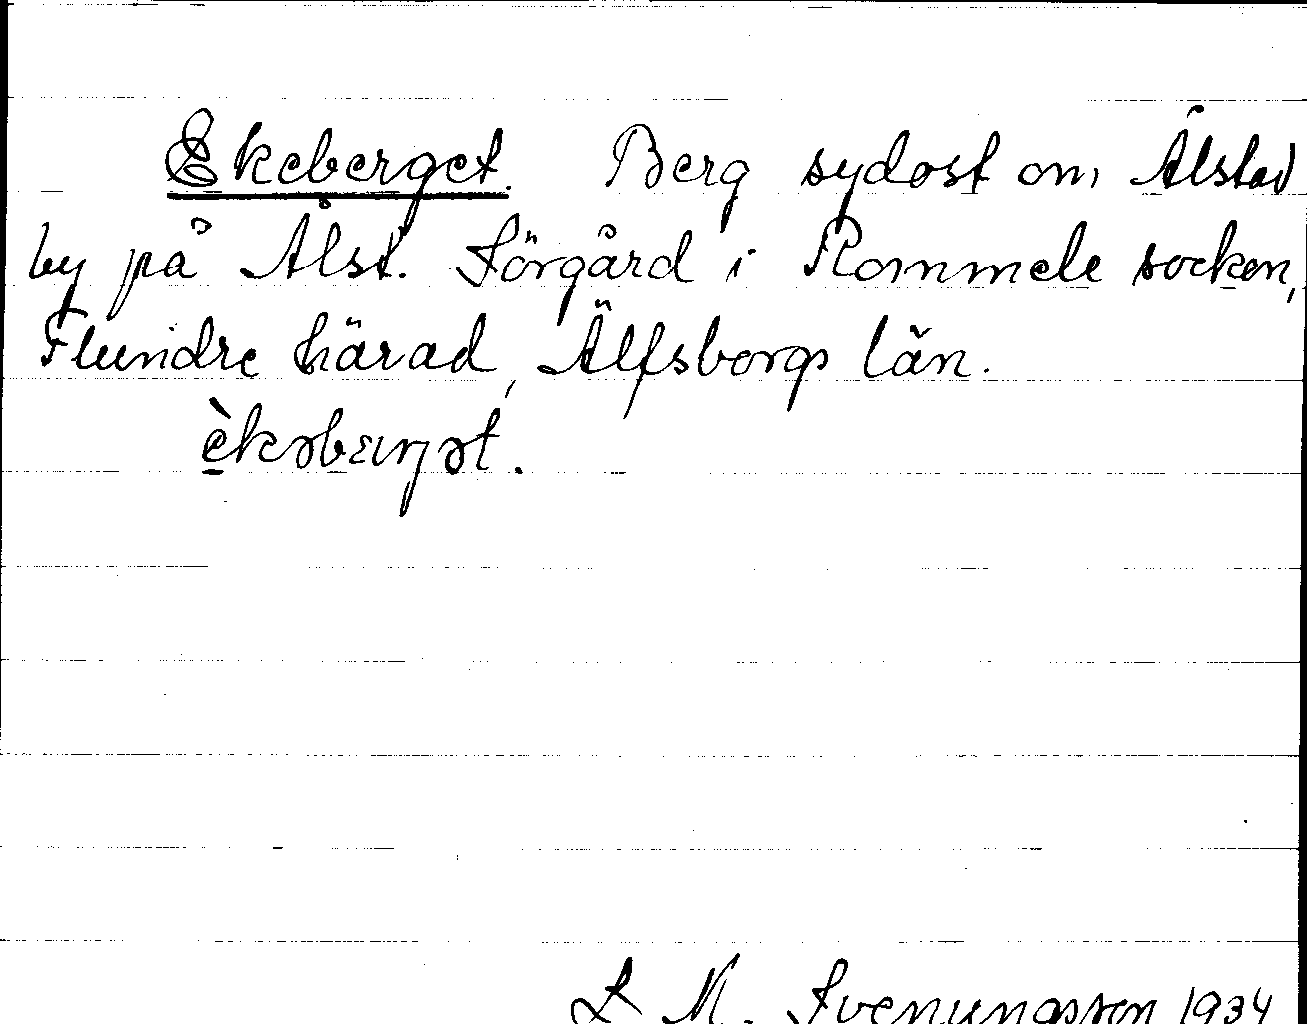 Ekeberget. Berg sydost om Ålstad
by på Ålst. Sörgård i Rommele socken,
Flundre härad, Älfsborgs län.
L M. Svenungsson 1934